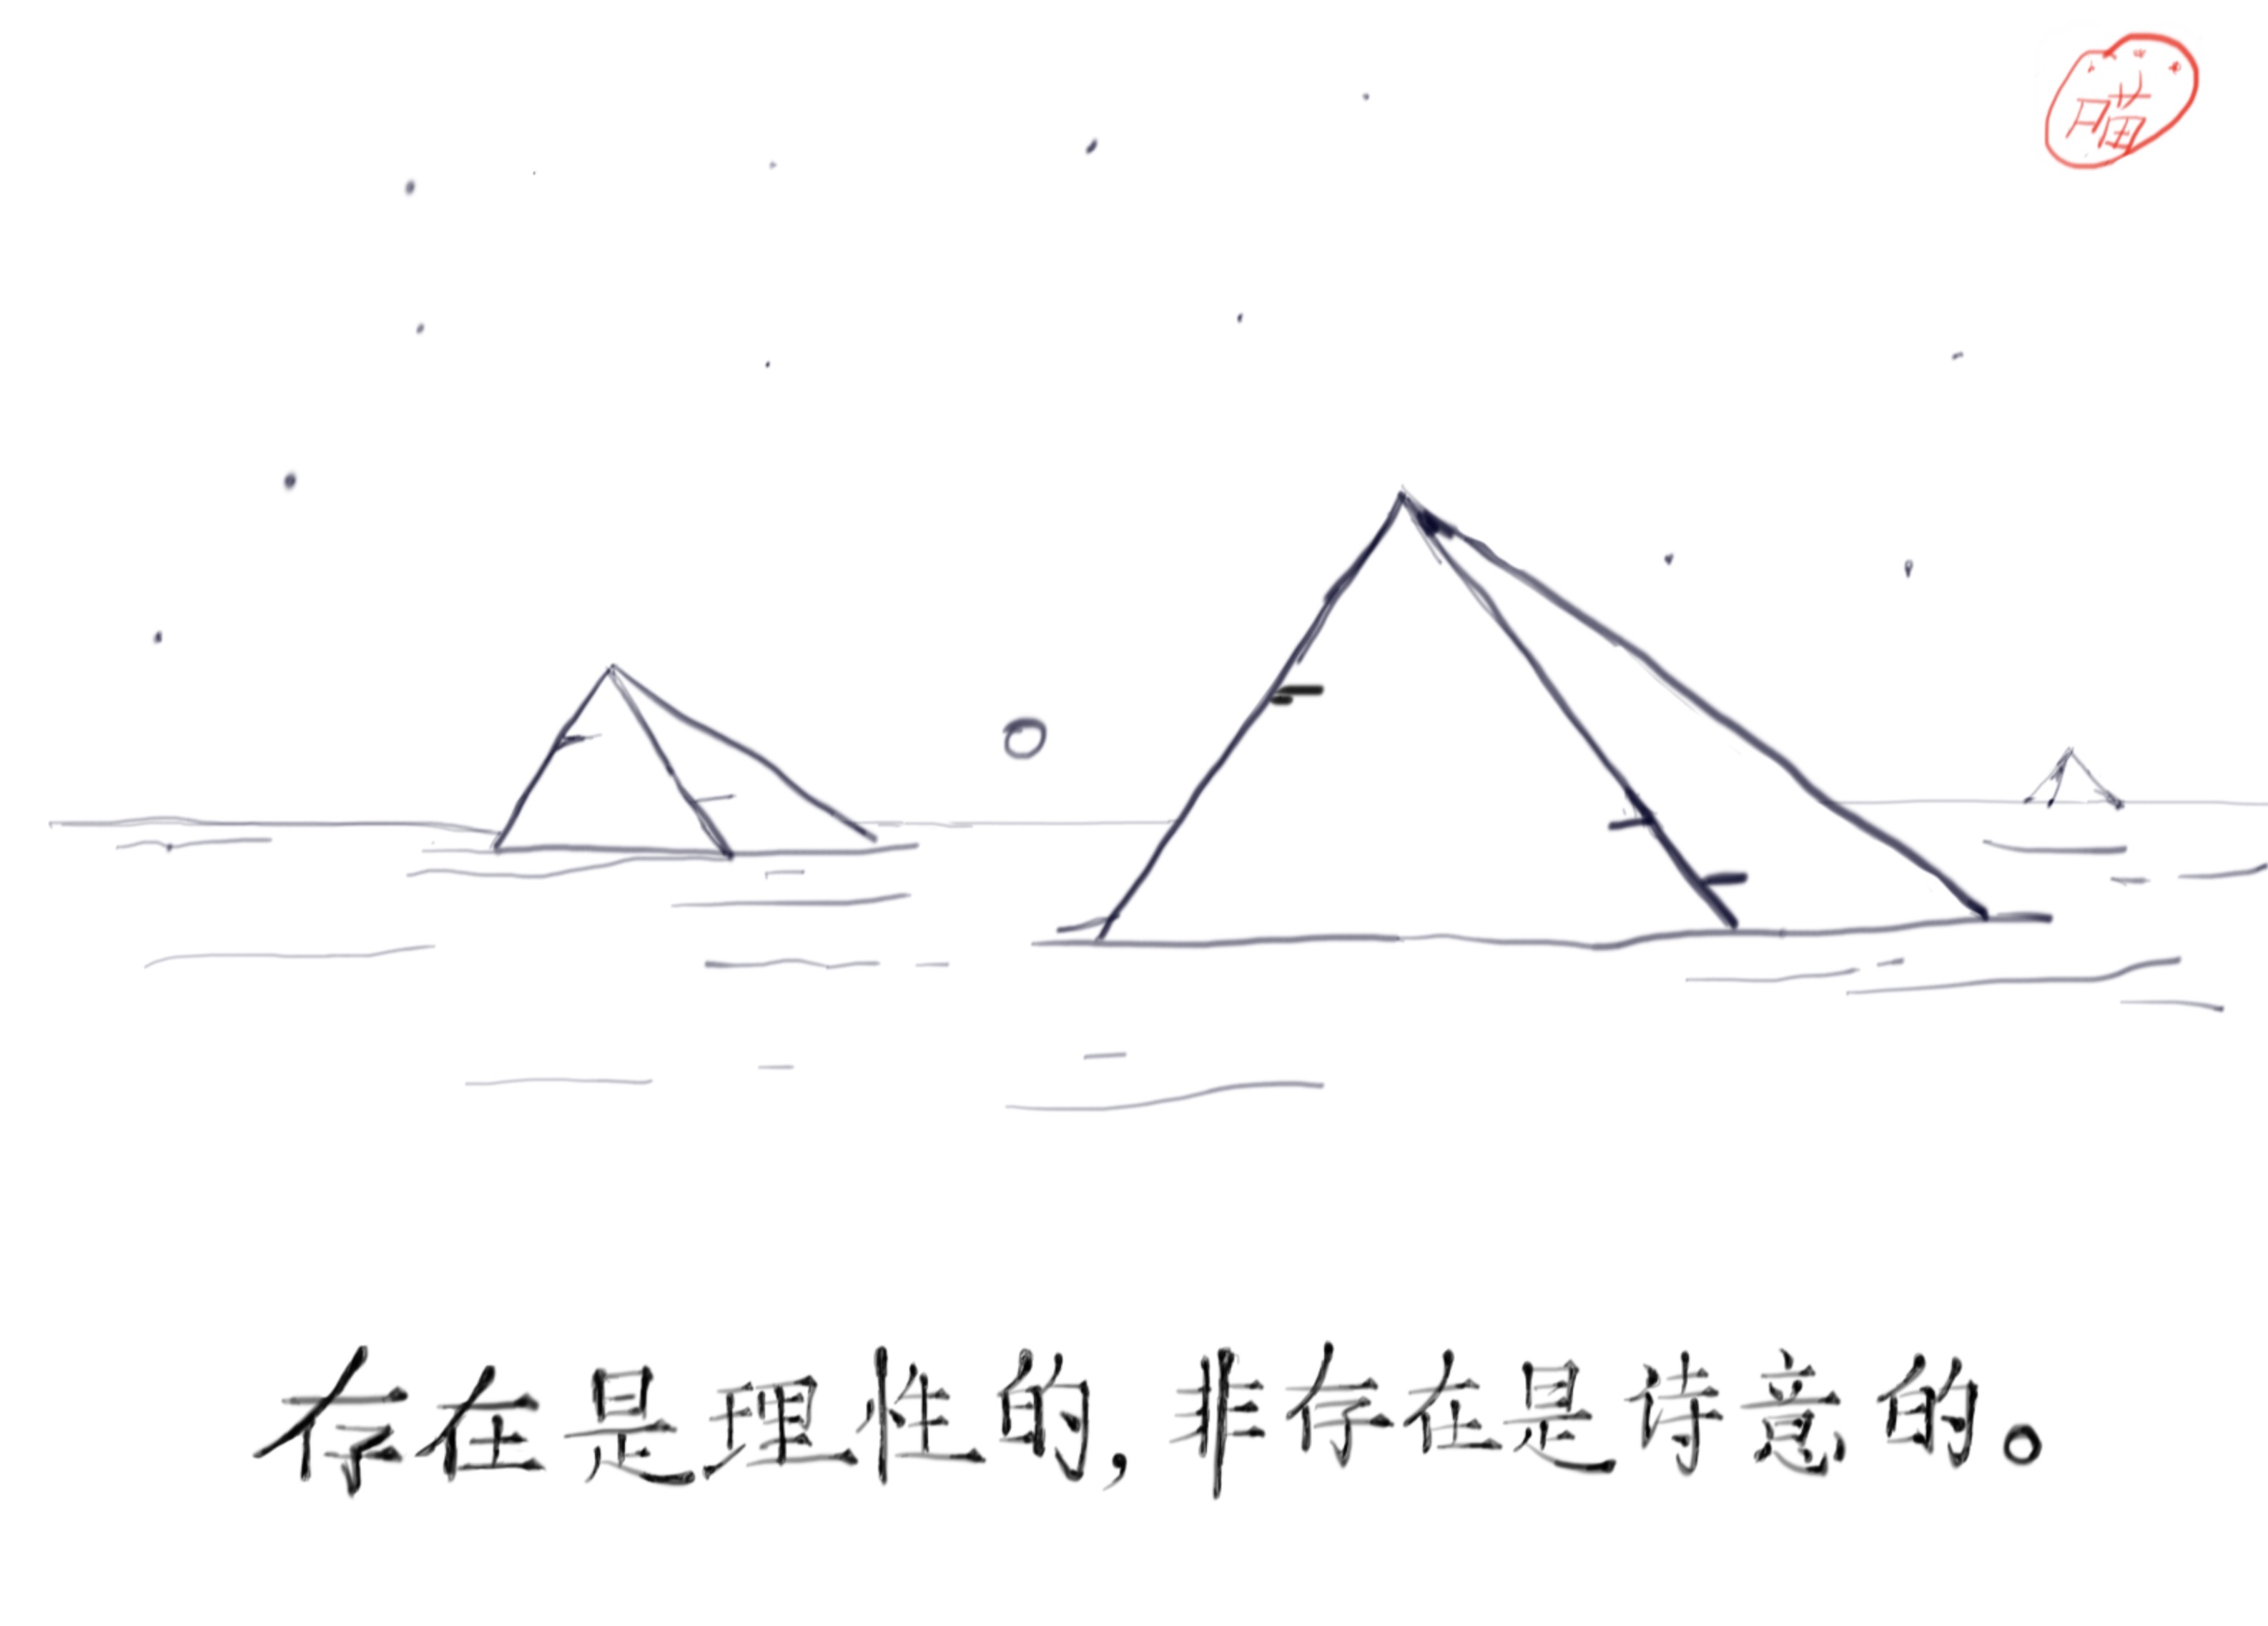 喵
存在是理性的,非存在是诗意的。